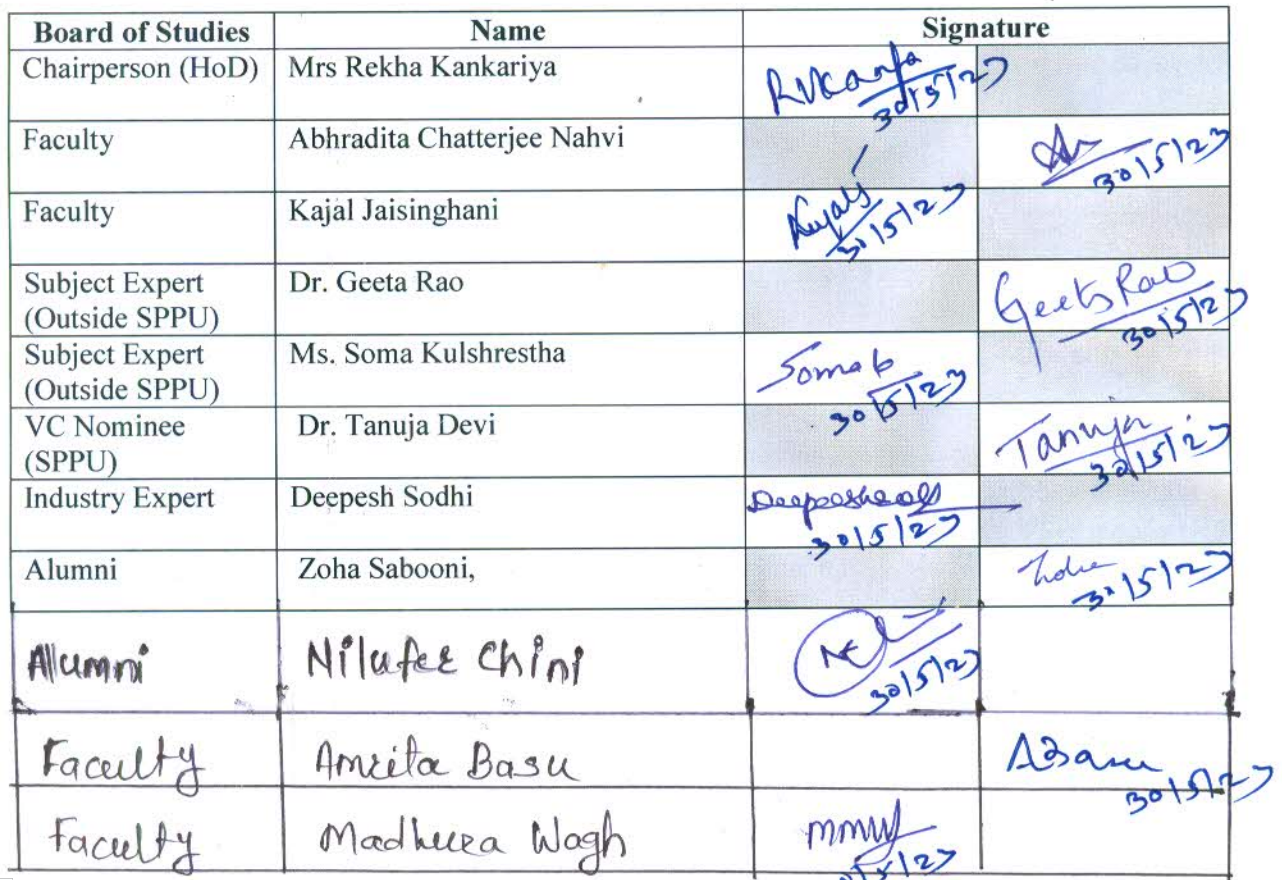 Board of Studies Name Signature
Chairperson (HoD) Mrs Rekha Kankariya
30/5/23
Faculty Abhradita Chatterjee Nahvi
30/5/23
Faculty Kajal Jaisinghani
30/5/23
Subject Expert Dr. Geeta Rao Geeta Rao
(Outside SPPU) 30/5/23
Subject Expert Ms. Soma Kulshrestha
(Outside SPPU) 30/5/23
VC Nominee Dr. Tanuja Devi Tanuja
(SPPU) 30/5/23
Industry Expert Deepesh Sodhi
30/5/23
Alumni Zoha Sabooni,
30/5/23
Allumni Nilufer Chini
30/5/23
Faculty Amrita Basu ABasu
30/5/23
Faculty Madheera Wagh